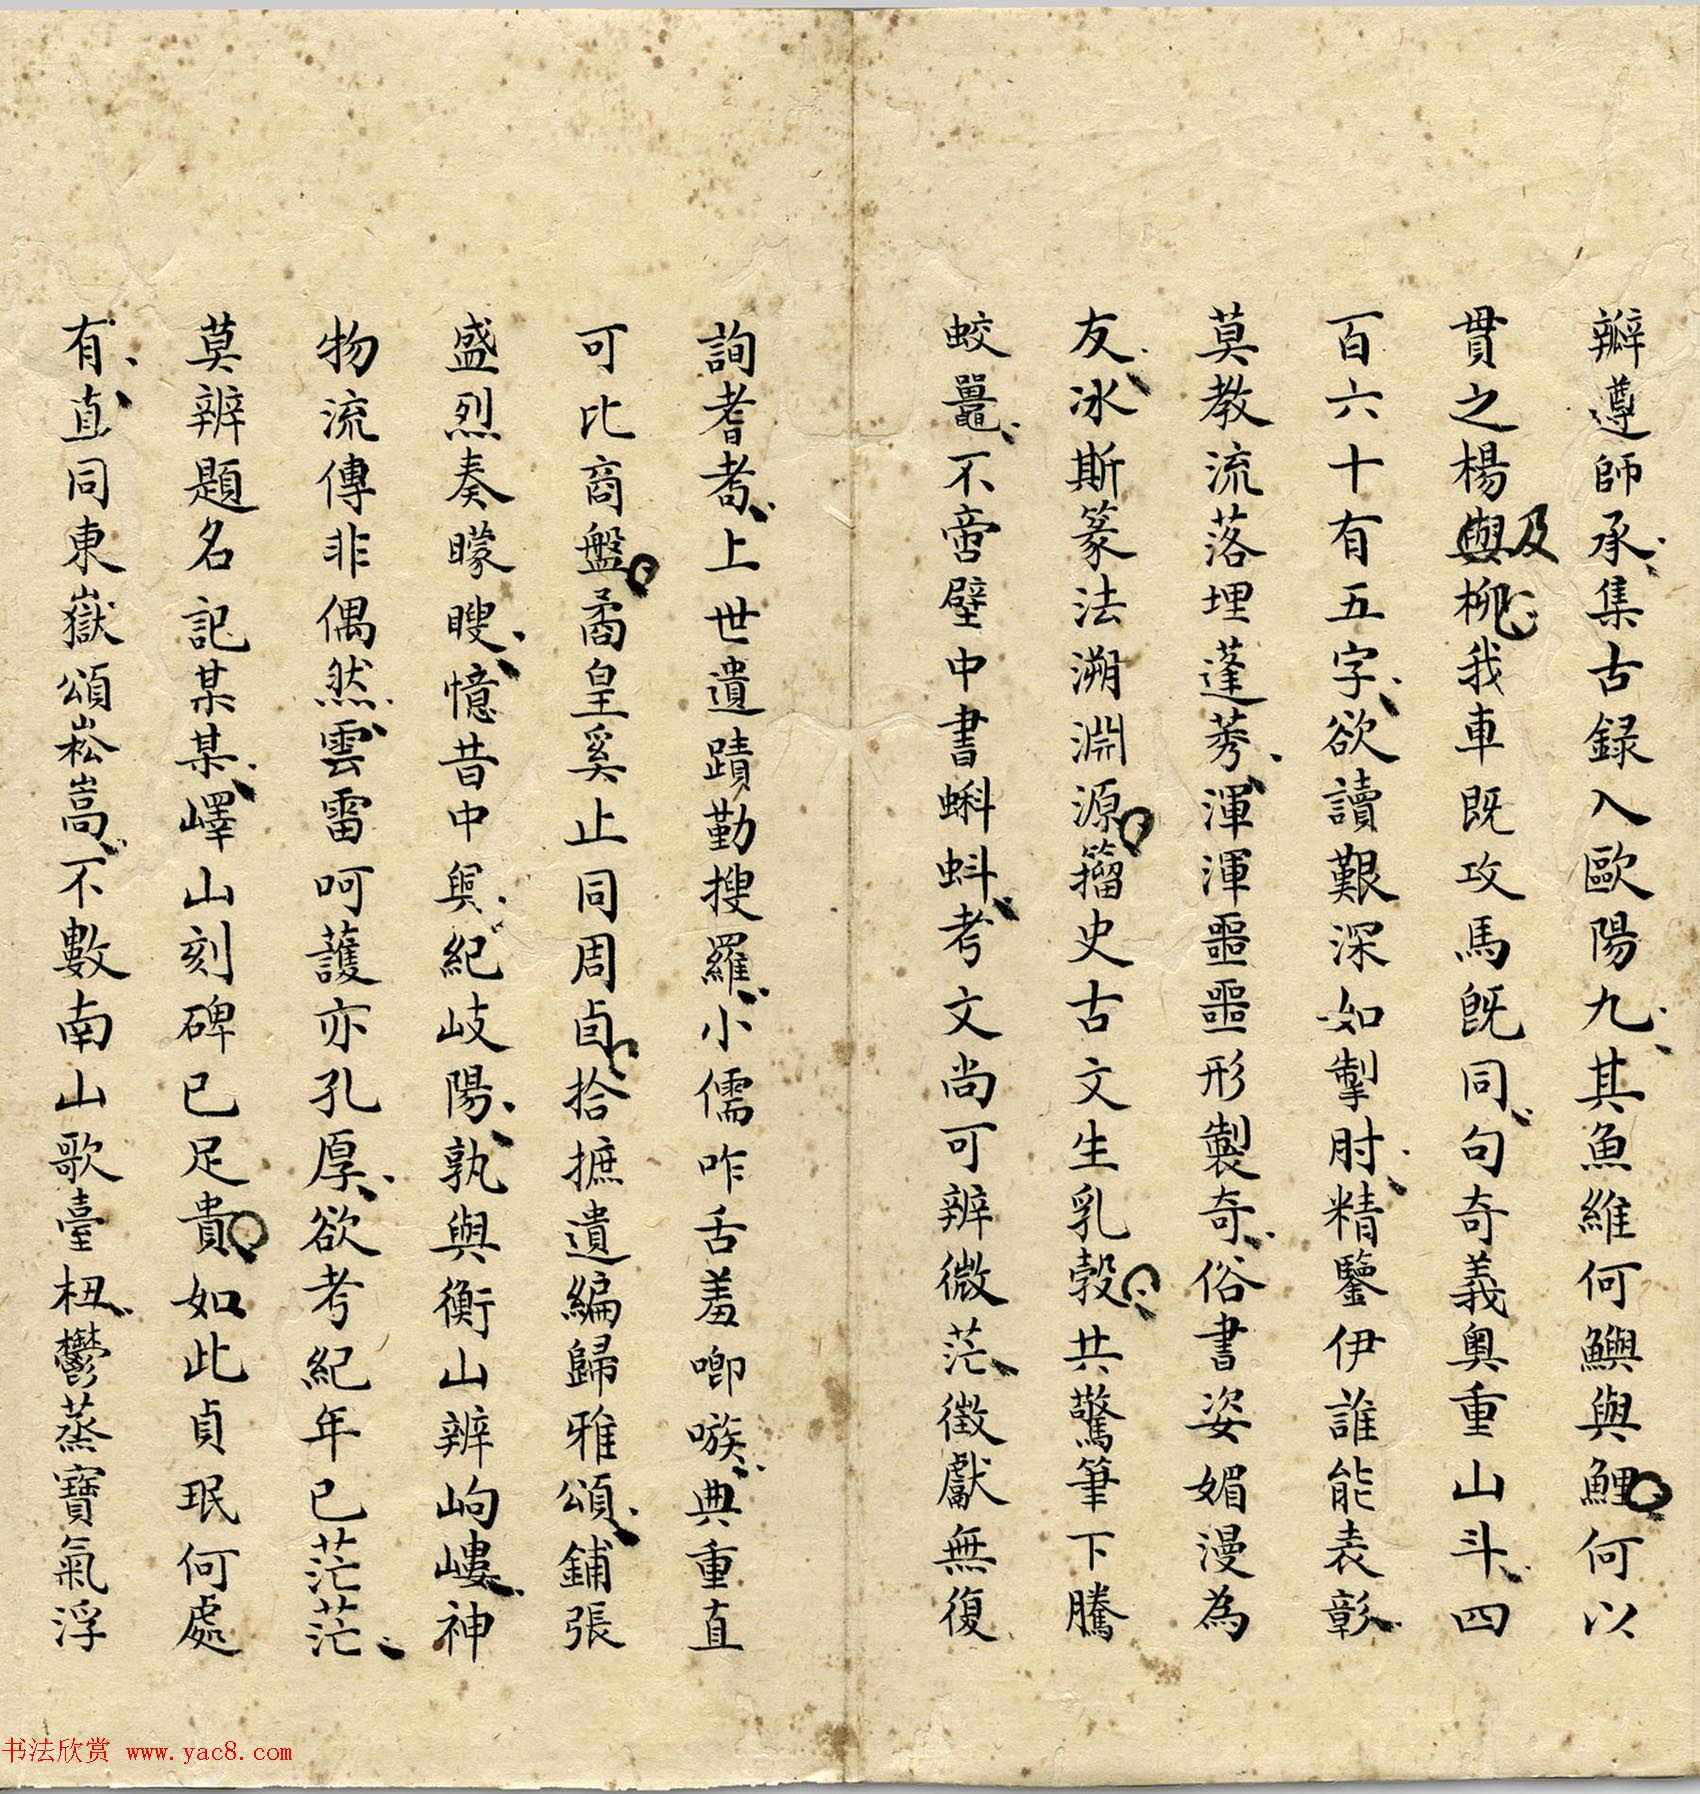 辯遵師承集古録入歐陽九其魚維何鱮與鯉何以
貫之楊與及柳我車既攻馬既同句奇義奧重山斗四
百六十有五字欲讀艱深如掣肘精鑒伊誰能表彰
莫教流落埋蓬莠渾渾噩噩形製奇俗書姿媚漫為
友冰斯篆法溯淵源籀史古文生乳㝅共驚筆下騰
蛟鼉不啻壁中書蝌蚪考文尚可辨微茫徵獻無復
詢耆耇上世遺蹟勤搜羅小儒咋舌羞唧嗾典重直
可比商盤矞皇奚止同周卣拾摭遺編歸雅頌鋪張
盛烈奏矇瞍憶昔中興紀岐陽孰與衡山辨岣嶁神
物流傳非偶然雲雷呵護亦孔厚欲考紀年已茫茫
莫辨題名記某某嶧山刻碑已足貴如此貞珉何處
有直同東嶽頌崧嵩不數南山歌臺杻鬱蒸寶氣浮
书法欣赏 www.yac8.com